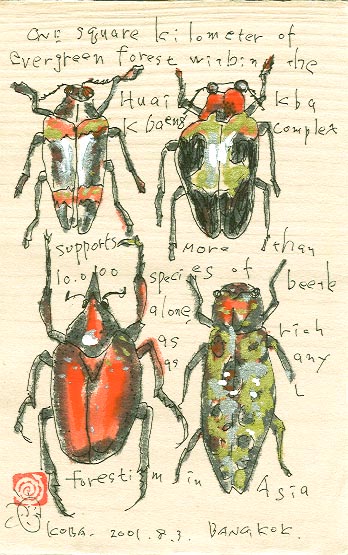 One square kilometer of
evergreen forest within the
Huai Kha
Khaeng complex
supports more than
10.0100 species of beetle
alone, rich
as any
as
forestism in Asia
KOBA. 2001.8.3. BANGKOK.